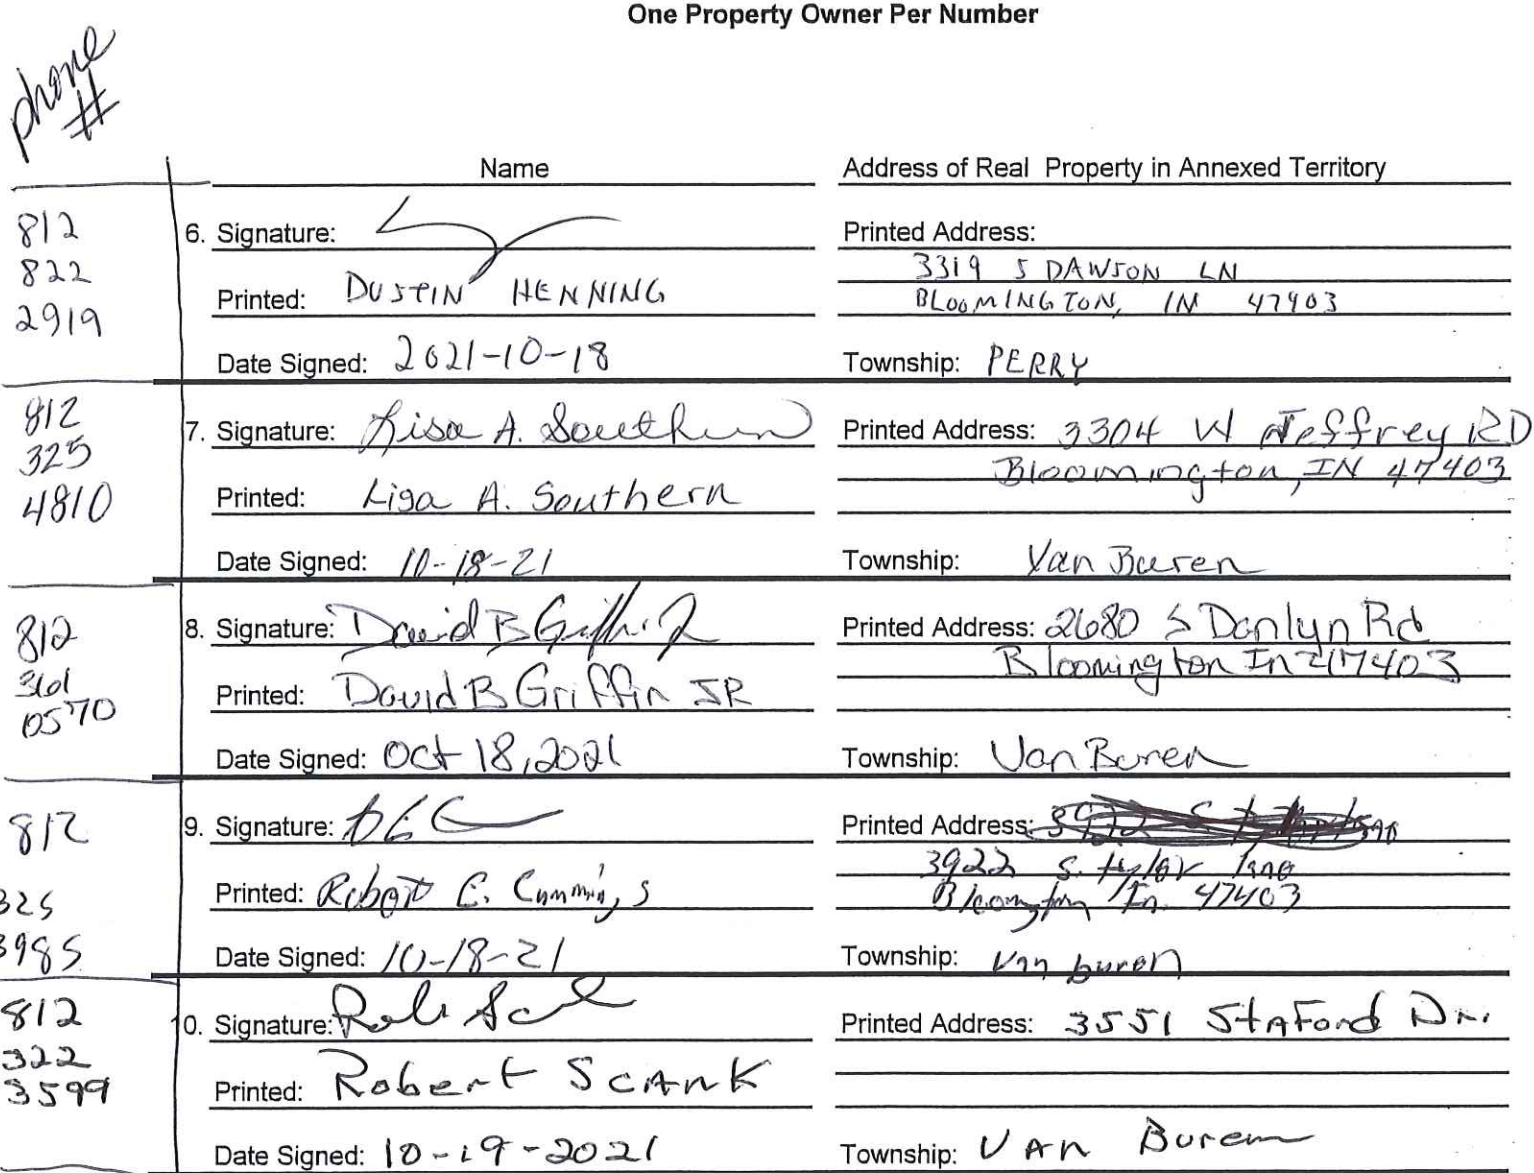 One Property Owner Per Number
phone
#
Name Address of Real Property in Annexed Territory
812
822
2919
6. Signature:
Printed: DUSTIN HENNING
Date Signed: 2021-10-18
Printed Address:
3319 S DAWSON LN
BLOOMINGTON, IN 47903
Township: PERRY
812
325
4810
7. Signature: Lisa A. Southern
Printed: Lisa A. Southern
Date Signed: 10-18-21
Printed Address: 3304 W Jeffrey RD
Bloomington, IN 47403
Township: Van Buren
812
361
0570
8. Signature: David B Griffin Jr
Printed: David B Griffin JR
Date Signed: Oct 18, 2021
Printed Address: 2680 S Danlyn Rd
Bloomington In 47403
Township: Van Buren
812
325
3985
9. Signature:
Printed: Robert E. Cummings
Date Signed: 10-18-21
Printed Address:
3922 S. tyler lane
Bloomington In. 47403
Township: Van buren
812
322
3599
10. Signature:
Printed: Robert Scank
Date Signed: 10-19-2021
Printed Address: 3551 Staford Dr.
Township: VAn Buren